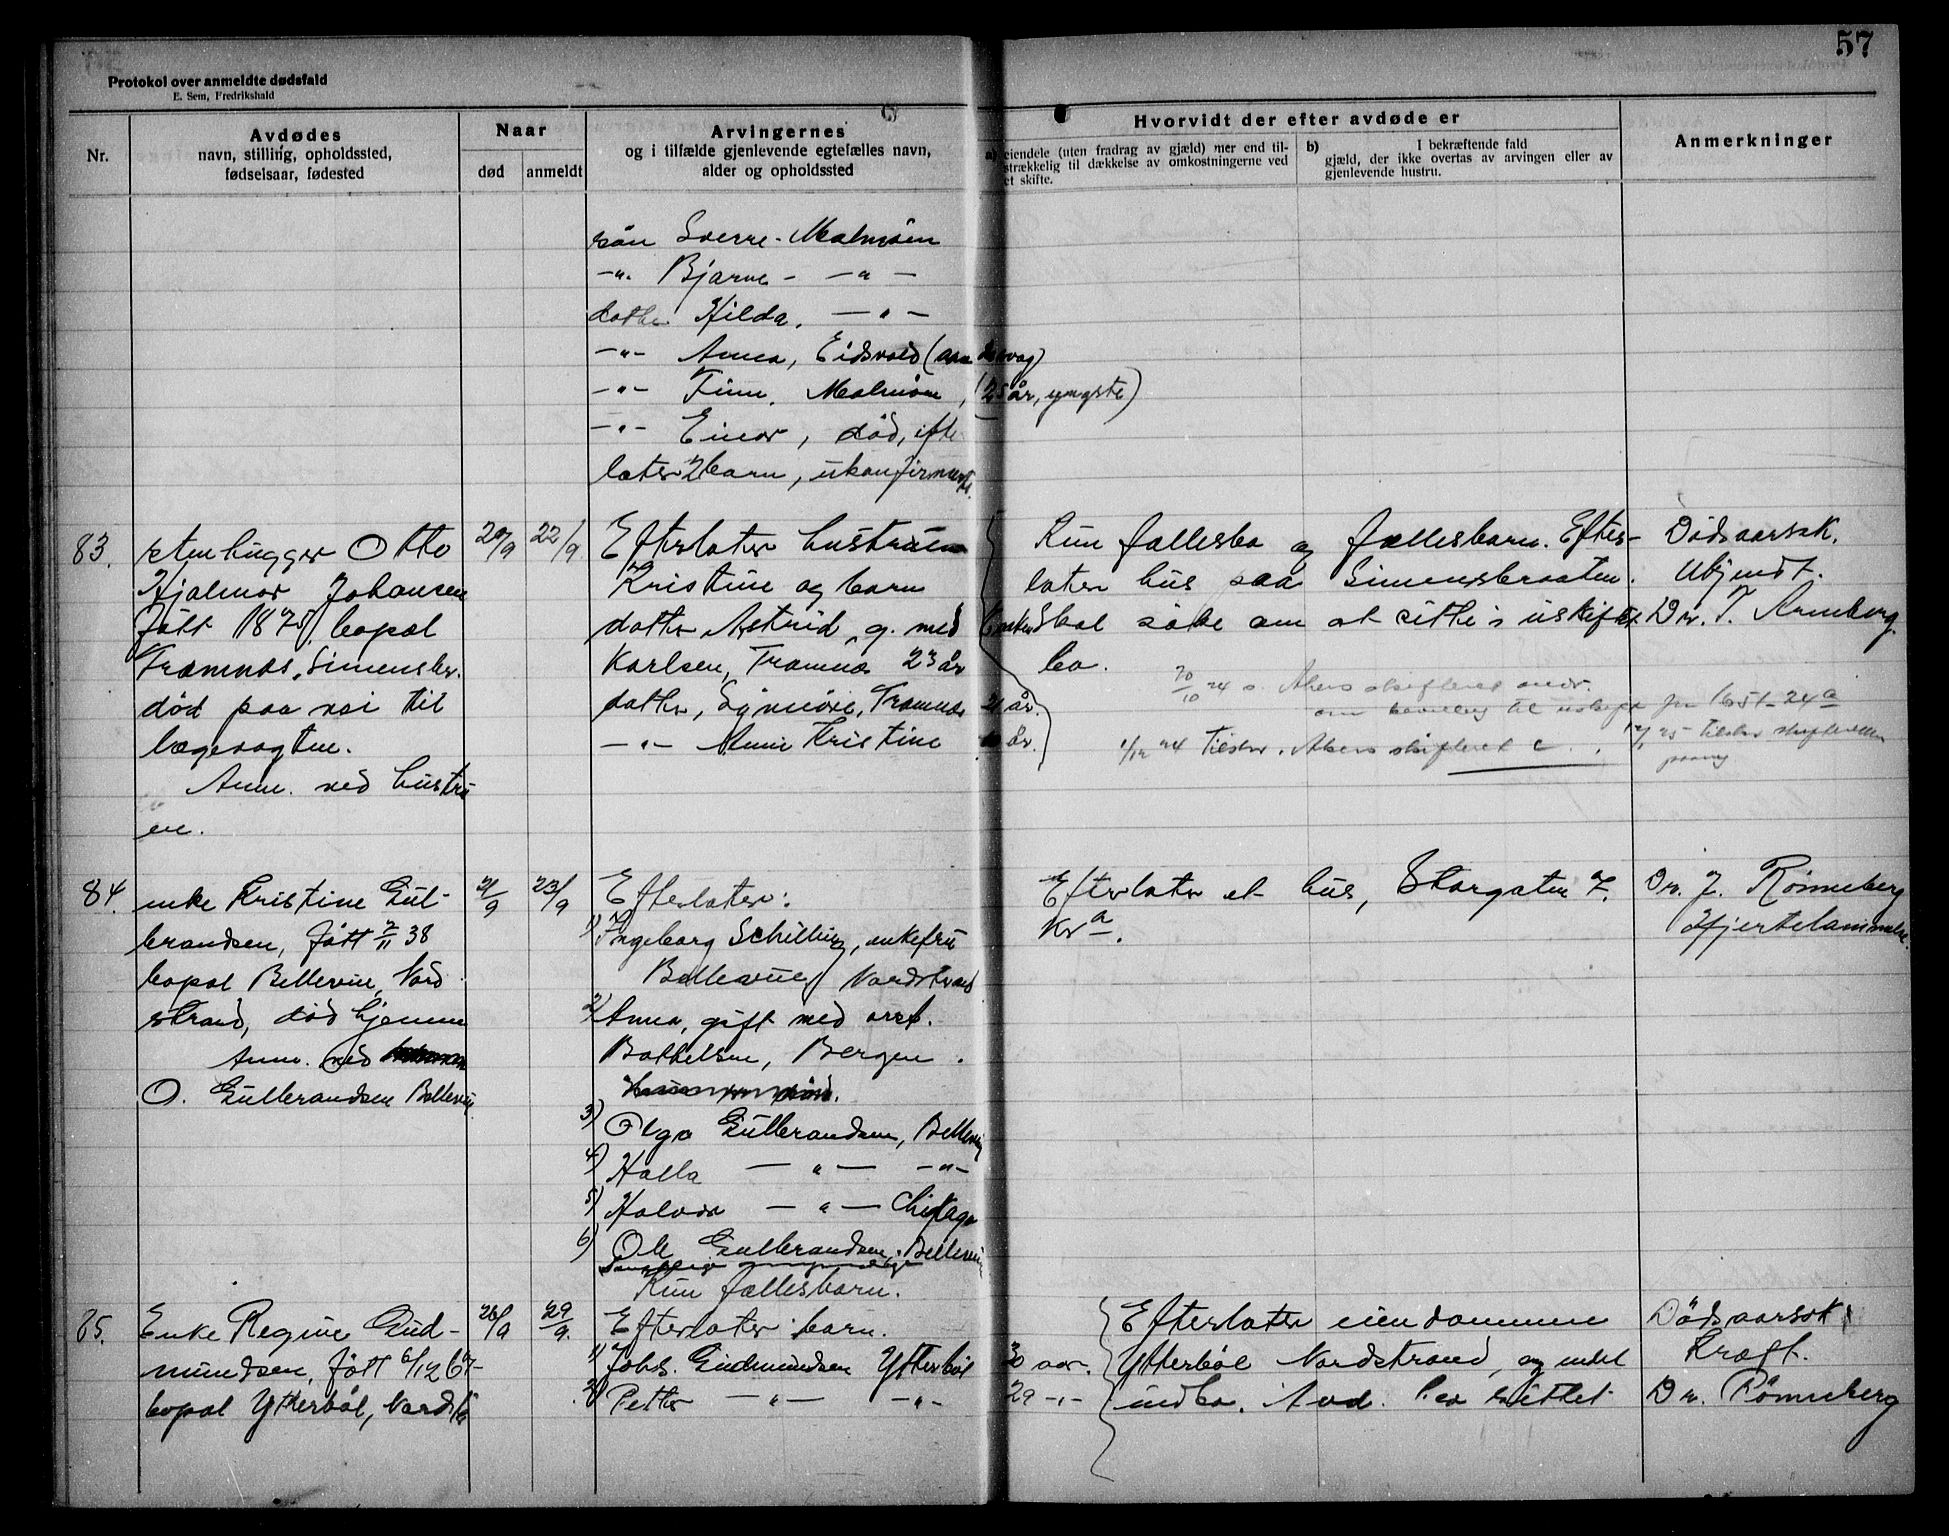 57
Protokol over anmeldte dødsfald
E. Sem, Fredrikshald
Nr.
Avdødes
navn, stilling, opholdssted,
fødselsaar, fødested
Naar
død
anmeldt
Arvingernes
og i tilfælde gjenlevende egtefælles navn,
alder og opholdssted
Hvorvidt der efter avdøde er
a) eiendele (uten fradrag av gjæld) mer end til-
strækkelig til dækkelse av omkostningerne ved
et skifte.
b) I bekræftende fald
gjæld, der ikke overtas av arvingen eller av
gjenlevende hustru.
Anmerkninger
søn Sverre - Malmøen
-"- Bjarne - -"-
datter Hilda, -"-
-"- Anna, Eidsvold
-"- Finn, Malmøen, (25 år, yngste)
-"- Einar, død, efter
later 2 barn, ukonfirmerte.
83.
stenhugger Otto
Hjalmar Johansen
født 1875, bopæl
Framnæs, Simensbr.
død paa vei til
lægevagten.
Anm. ved hustru
en.
20/9
22/9
Efterlater hustruen
Kristine og barn
datter Astrid, g. med
Karlsen, Framnæs 23 år
datter, Synnøve, Framnæs 21 år.
-"- Anne Kristine år.
Kun fællesbo og fællesbarn. Efter-
later hus paa Simensbraaten.
Enken skal søke om at sitte i uskiftet
bo.
20/10 24 s. Akers skifteret andr.
om bevilling til uskifte jnr 1651-24a
1/12 24 Tilskr. Akers skifteret
Dødsaarsak.
Ukjendt.
Dr. T. Arneberg.
84.
enke Kristine Gul-
brandsen, født 2/11 38
bopæl Bellevue, Nord
strand, død hjemme
Anm. ved
O. Gulbrandsen Bellevue
21/9
23/9
Efterlater:
1) Ingeborg Schilling, enkefru
Bellevue, Nordstrand
2) Anna, gift med
Bothelsen, Bergen.
3) Olga Gulbrandsen, Bellevue
4) Halla -"- -"-
5) Halvor -"- Chikago
6) Ole Gulbrandsen, Bellevue
Kun fællesbarn.
Efterlater et hus, Storgaten 7.
Kra.
Dr. J. Rønneberg
Hjertelammelse.
85.
Enke Regine Gud-
mundsen, født 6/12 67
bopæl Ytterbøl, Nordstr
26/9
29/9.
Efterlater barn.
1) Johs. Gudmundsen Ytterbøl 30 aar.
2) Petter -"- -"- 29 -"-
Efterlater eiendommen
Ytterbøl Nordstrand, og endel
indbo. Avd. har sittet
Dødsaarsak
Kræft.
Dr. Rønneberg